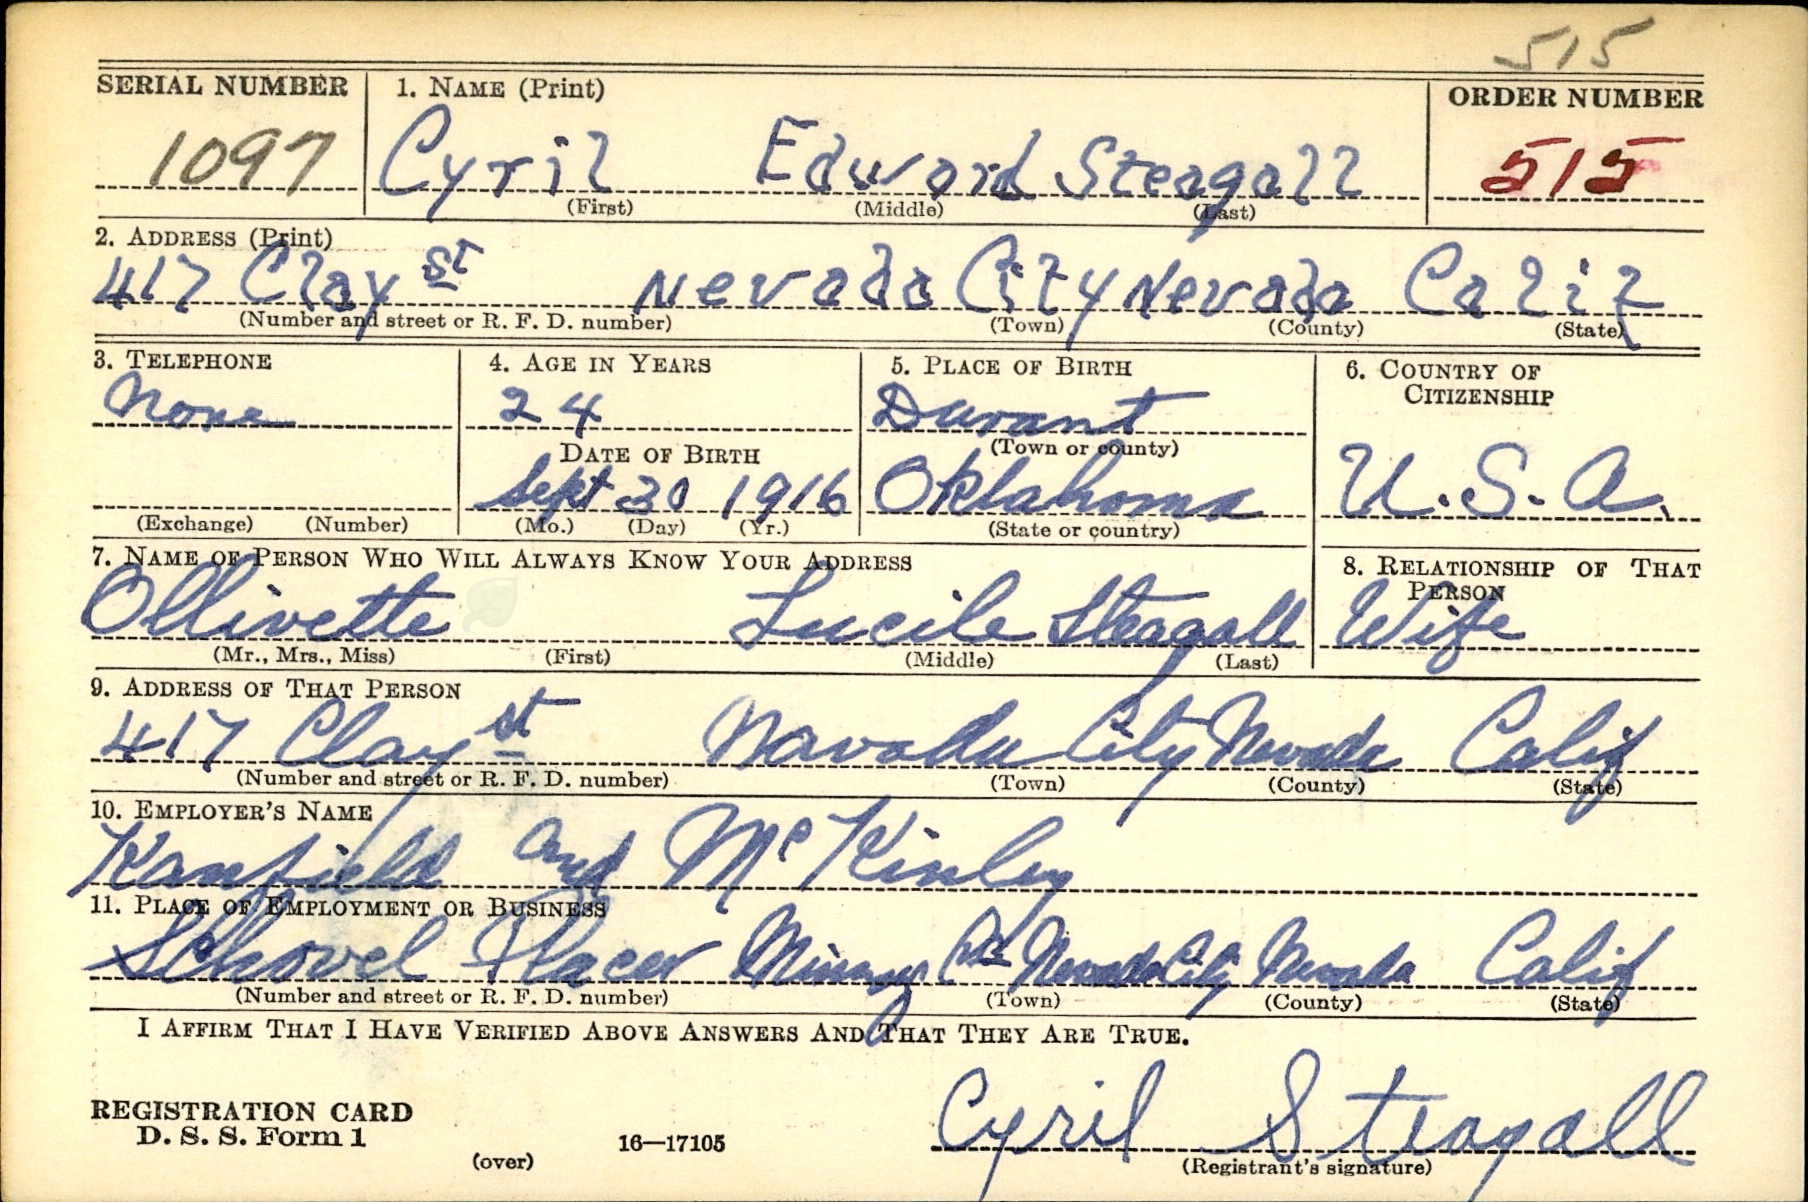 515
SERIAL NUMBER 1. NAME (Print) ORDER NUMBER
1097 Cyril Edward Steagall 515
(First) (Middle) (Last)
2. ADDRESS (Print)
417 Clay St Nevada City Nevada Calif
(Number and street or R. F. D. number) (Town) (County) (State)
3. TELEPHONE 4. AGE IN YEARS 5. PLACE OF BIRTH 6. COUNTRY OF CITIZENSHIP
None 24 Durant
DATE OF BIRTH (Town or county)
Sept 30 1916 Oklahoma U.S.A.
(Exchange) (Number) (Mo.) (Day) (Yr.) (State or country)
7. NAME OF PERSON WHO WILL ALWAYS KNOW YOUR ADDRESS 8. RELATIONSHIP OF THAT PERSON
Ollivette Lucile Steagall Wife
(Mr., Mrs., Miss) (First) (Middle) (Last)
9. ADDRESS OF THAT PERSON
417 Clay St Navada City Nevada Calif
(Number and street or R. F. D. number) (Town) (County) (State)
10. EMPLOYER'S NAME
Kanfield and McKinley
11. PLACE OF EMPLOYMENT OR BUSINESS
Schovel Placer Nevada City Nevada Calif
(Number and street or R. F. D. number) (Town) (County) (State)
I AFFIRM THAT I HAVE VERIFIED ABOVE ANSWERS AND THAT THEY ARE TRUE.
REGISTRATION CARD
D. S. S. Form 1 16—17105 Cyril Steagall
(over) (Registrant's signature)